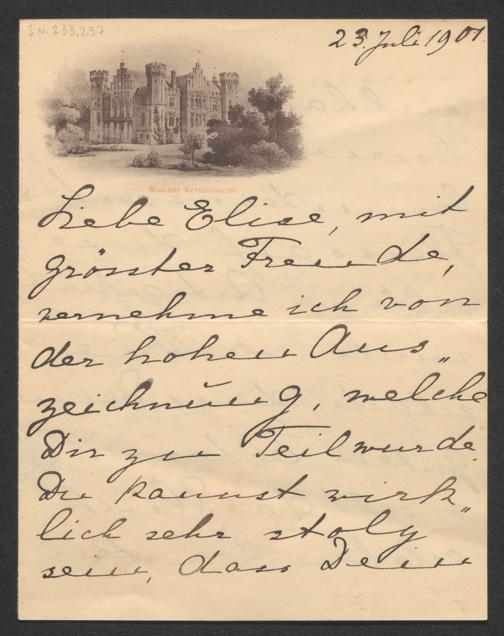 I.N. 233.237
23. Juli 1901.
SCHLOSS KETSCHENDORF.
Liebe Elise, mit
grösster Freude,
vernehme ich von
der hohen Aus„
zeichnung, welche
Dir zu Teil wurde.
Du kannst wirk„
lich sehr stolz
sein, dass Dein